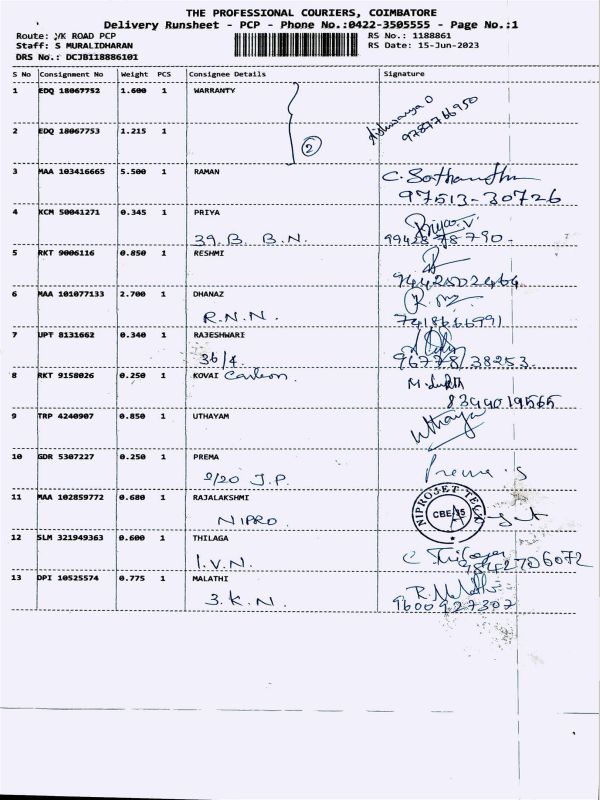 THE PROFESSIONAL COURIERS, COIMBATORE
Delivery Runsheet - PCP - Phone No.:0422-3505555 - Page No.:1
Route: /K ROAD PCP RS No.: 1188861
Staff: S MURALIDHARAN RS Date: 15-Jun-2023
DRS No.: DCJB118886101
S No Consignment No Weight PCS Consignee Details Signature
1 EDQ 18067752 1.600 1 WARRANTY
Aishwarya D
9787766950
2 EDQ 18067753 1.215 1
2
3 MAA 103416665 5.500 1 RAMAN
97513-30726
4 KCM 50041271 0.345 1 PRIYA Priya.V
39. B. B.N. 99428 78 790.
5 RKT 9006116 0.850 1 RESHMI
9442502464
6 MAA 101077133 2.700 1 DHANAZ
R.N.N. 7418666991
7 UPT 8131662 0.340 1 RAJESHWARI
36/4. 96778/38253.
8 RKT 9158026 0.250 1 KOVAI Carbon.
8344019565
9 TRP 4240907 0.850 1 UTHAYAM
Uthaya
10 GDR 5307227 0.250 1 PREMA
2/20 J.P. Prema.S
11 MAA 102859772 0.680 1 RAJALAKSHMI
NIPRO. NIPROJET TECK CBE
12 SLM 321949363 0.600 1 THILAGA
I.V.N. C Thilaga
9842706072
13 DPI 10525574 0.775 1 MALATHI R. Malathi
3.K.N. 9600927307